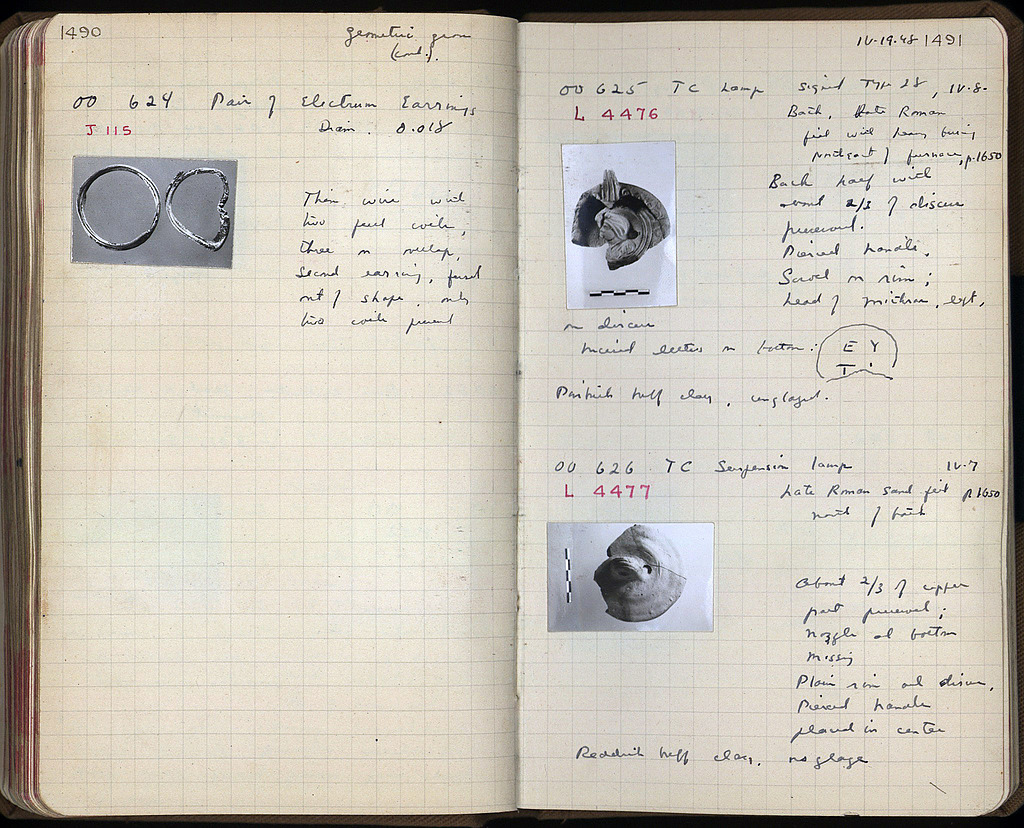 1490
geometric grave
(cont.).
OO 624 Pair of Electrum Earrings
J 115
Diam. 0.018
Thin wire with
two full coils,
three in overlap,
Second earring, fused
out of shape, only
two coils present
IV-19-48 1491
OO 625 TC Lamp signed Type 28, IV-8-
L 4476
Bath, Late Roman
fill with heavy burning
northeast of furnace, p. 1650
Back half with
about 2/3 of discus
preserved.
Pierced handle,
Scroll on rim;
head of Mithras, left,
on discus
Incised letters on bottom:
E Y
T .
Pinkish buff clay, unglazed.
OO 626 TC Suspension lamp IV-7
L 4477
Late Roman Sand fill p. 1650
north of bath
About 2/3 of upper
part preserved;
Nozzle and bottom
missing
Plain rim and discus,
Pierced handle
placed in center
Reddish buff clay, no glaze